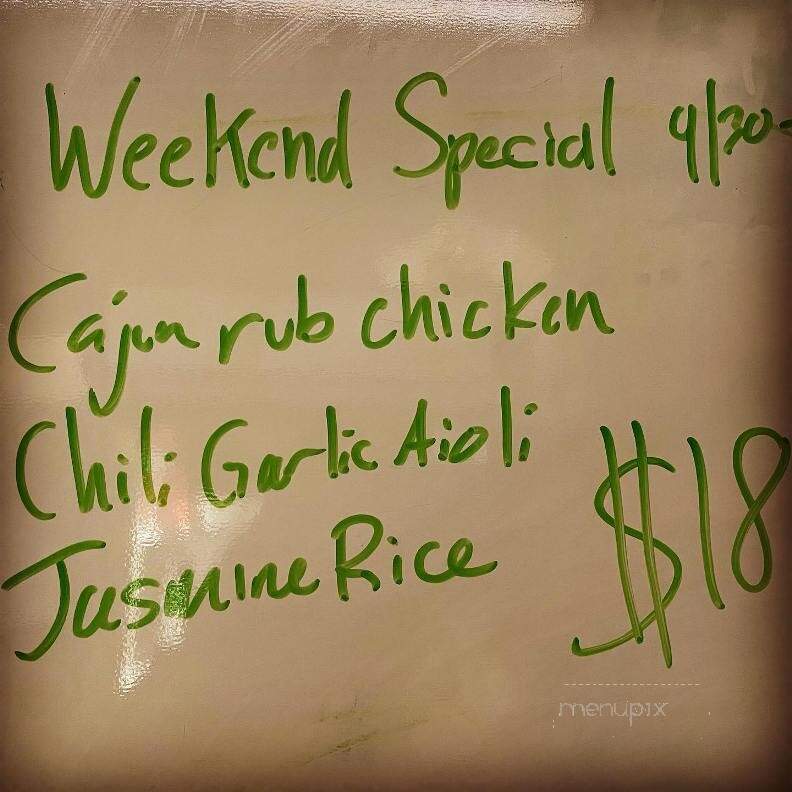 Weekend Special 4/30-
Cajun rub chicken
Chili Garlic Aioli
$18
Jasmine Rice
menupix